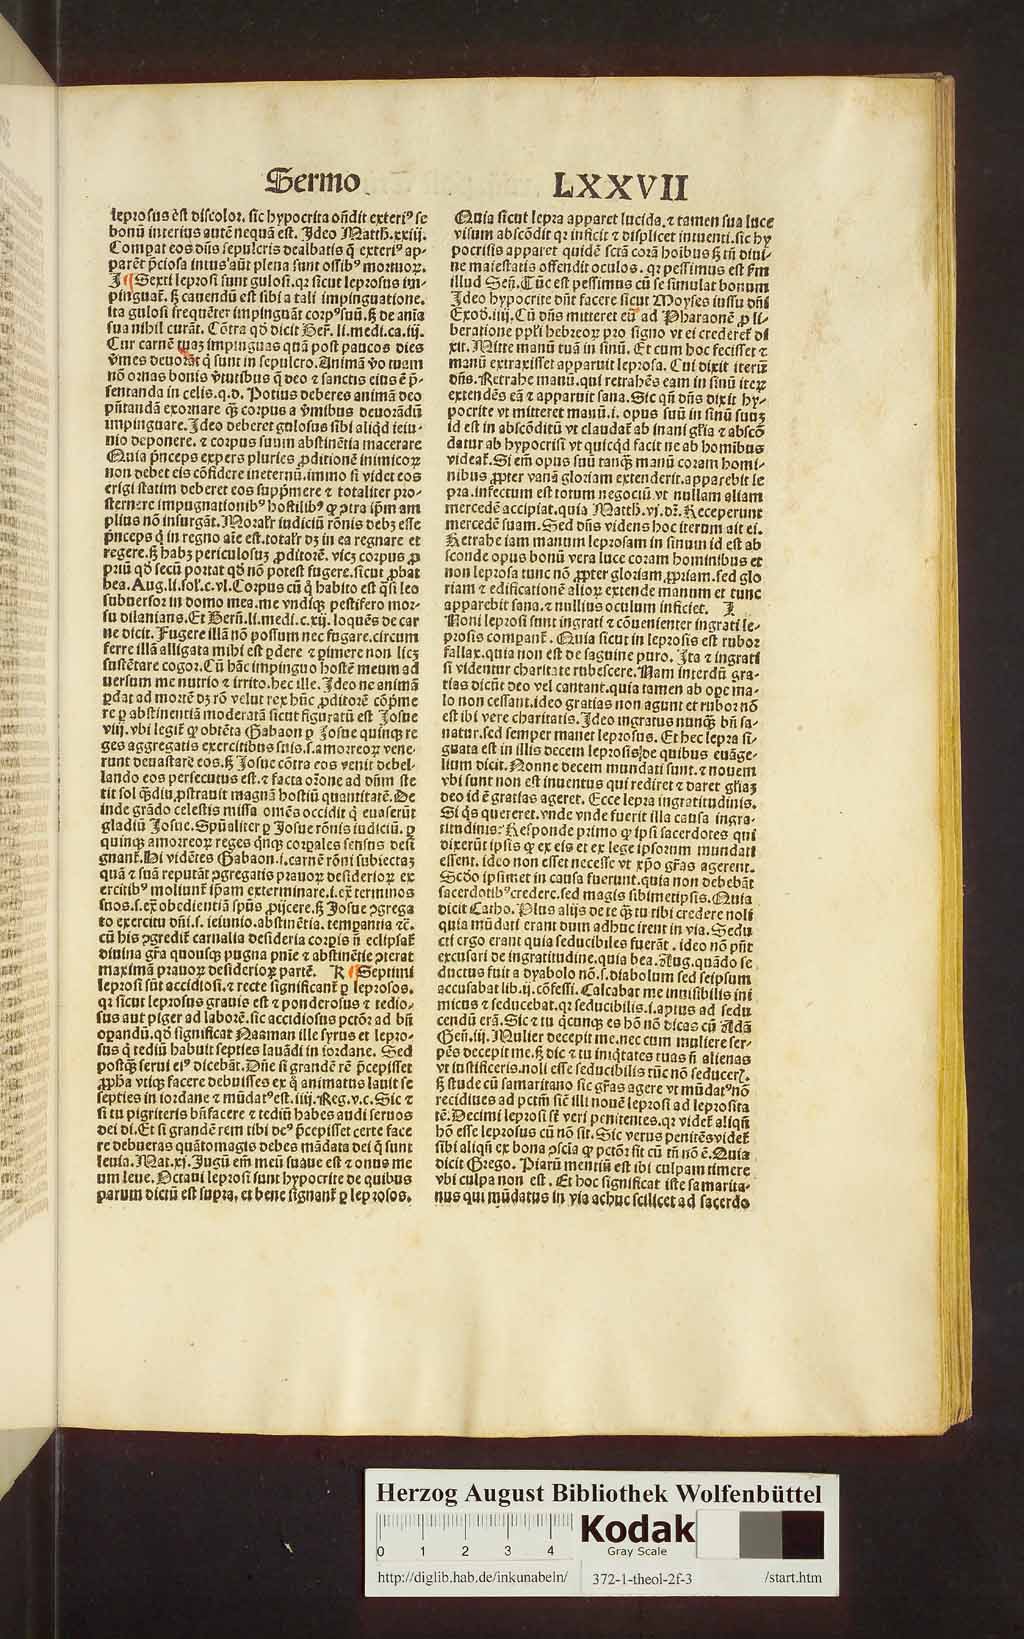 Sermo LXXVII
leprosus est discolor. sic hypocrita oñdit exteri⁹ se
bonū interius autē nequā est. Ideo Matth. xxiij.
Compat eos dñs sepulcris dealbatis q̄ exteri⁹ ap-
parēt p̄ciosa intus aūt plena sunt ossib⁹ mortuoꝝ.
I Sexti leprosi sunt gulosi. qꝛ sicut leprosus im-
pinguat̄. sꝫ cauendū est sibi a tali impinguatione.
ita gulosi frequēter impinguāt corp⁹ suū. sꝫ de aīa
sua nihil curāt. Cōtra qd̄ dicit Ber̄. li. medi. ca. iij.
Cur carnē tuaꝫ impinguas quā post paucos dies
v̄mes deuorāt q̄ sunt in sepulcro. Animā v̄o tuam
nō ornas bonis v̄tutibus q̄ deo ⁊ sanctis eius ē p̄-
sentanda in celis. q. d. Potius deberes animā deo
pn̄tandā exornare qꝫ corpus a v̄mibus deuorādū
impinguare. Ideo deberet gulosus sibi aliqd ieiu-
nio deponere. ⁊ corpus suum abstinētia macerare
Quia p̄nceps expers pluries ꝓditionē inimicoꝝ
non debet eis cōfidere ineternū. immo si videt eos
erigi statim deberet eos supp̄mere ⁊ totaliter pro-
sternere impugnationib⁹ hostilib⁹ qꝙ ꝯtra ip̄m am
plius nō insurgāt. Moralr̄ iudiciū rōnis debꝫ esse
p̄nceps q̄ in regno aīe est. totalr̄ dꝫ in ea regnare et
regere. sꝫ habꝫ periculosuꝫ ꝓditorē. vicꝫ corpus ꝓ
priū qd̄ secū portat qd̄ nō potest fugere. sicut ꝓbat
bea. Aug. li. sol̄. c. vl. Corpus cū q̄ habito est q̄si leo
subuersor in domo mea. me vndiqꝫ pestifero mor-
su dilanians. Et Bern̄. li. medi. c. xij. loquēs de car
ne dicit. Fugere illā nō possum nec fugare. circum
ferre illā alligata mihi est ꝑdere ⁊ ꝑimere non licꝫ
sustētare cogor. Cū hāc impinguo hostē meum ad
uersum me nutrio ⁊ irrito. hec ille. Ideo ne animā
ꝑdat ad mortē dꝫ rō velut rex hūc ꝓditorē cōp̄me
re ꝑ abstinentiā moderatā sicut figuratū est Josue
viij. vbi legit̄ qꝙ obtēta Gabaon ꝑ Josue quinqꝫ re
ges aggregatis exercitibus suis. s. amorreoꝝ vene-
runt deuastare eos. sꝫ Josue cōtra eos venit debel-
lando eos persecutus est. ⁊ facta oꝛōne ad dn̄m ste
tit sol qꝫdiu ꝓstrauit magnā hostiū quantitatē. De
inde grādo celestis missa omēs occidit q̄ euaserūt
gladiū Josue. Spūaliter ꝑ Josue rōnis iudiciū. ꝑ
quinqꝫ amorreoꝝ reges q̄nqꝫ corpales sensus desi
gnant̄. Hi vidētes Gabaon. i. carnē rōni subiectaꝫ
quā ⁊ suā reputāt ꝯgregatis prauoꝝ desiderioꝝ ex
ercitib⁹ moliunt̄ ip̄am exterminare. i. ex̄ terminos
suos. s. ex̄ obedientiā sp̄us ꝓijcere. sꝫ Josue ꝯgrega
to exercitu dn̄i. s. ieiunio. abstinētia. tempantia ⁊c̄.
cū his ꝯgredit̄ carnalia desideria corpis n̄ eclipsat̄
diuina gr̄a quousqꝫ pugna pn̄ie ⁊ abstinētie ꝯterat
maximā prauoꝝ desiderioꝝ partē. K Septimi
leprosi sūt accidiosi. ⁊ recte significant̄ ꝑ leprosos.
qꝛ sicut leprosus grauis est ⁊ ponderosus ⁊ tedio-
sus aut piger ad laborē. sic accidiosus pctōr ad bn̄
opandū. qd̄ significat Naaman ille syrus et lepro-
sus q̄ tediū habuit septies lauādi in iordane. Sed
postqꝫ serui ei⁹ dicebāt. Dn̄e si grandē rē p̄cepisset
ꝓph̄a vtiqꝫ facere debuisses ex q̄ animatus lauit se
septies in iordane ⁊ mūdat⁹ est. iiij. Reg. v. c. Sic ⁊
si tu pigriteris bn̄facere ⁊ tediū habes audi seruos
dei di. Et si grandē rem tibi de⁹ p̄cepisset certe face
re debueras quātomagis debes mādata dei q̄ sunt
leuia. Mat. xj. Jugū em̄ meū suaue est ⁊ onus me
um leue. Octaui leprosi sunt hypocrite de quibus
parum dictū est supra. et bene signant̄ ꝑ leprosos.
Quia sicut lepra apparet lucida. ⁊ tamen sua luce
visum abscōdit qꝛ inficit ⁊ displicet intuenti. sic hy
pocrisis apparet quidē sctā corā hoībus sꝫ tn̄ diui-
ne maiestatis offendit oculos. qꝛ pessimus est s̄m
illud Sen̄. Tūc est pessimus cū se simulat bonum
Ideo hypocrite dn̄t facere sicut Moyses iussu dn̄i
Exod̄. iiij. Cū dn̄s mitteret eū ad Pharaonē ꝓ li-
beratione ppl̄i hebreoꝝ pro signo vt ei crederet̄ di
xit. Mitte manū tuā in sinū. Et cum hoc fecisset ⁊
manū extraxisset apparuit leprosa. Cui dixit iterū
dn̄s. Retrahe manū. qui retrahēs eam in sinū iteꝝ
extendēs eā ⁊ apparuit sana. Sic qn̄ dn̄s dixit hy-
pocrite vt mitteret manū. i. opus suū in sinū suuꝫ
id est in abscōditū vt claudat̄ ab inani gl̄ia ⁊ abscō
datur ab hypocrisi vt quicqd facit ne ab homībus
videat̄. Si em̄ opus suū tanqꝫ manū coram homi-
nibus ꝓpter vanā gloriam extenderit. apparebit le
pra. infectum est totum negociū vt nullam aliam
mercedē accipiat. quia Matth. vj. dꝛ̄. Receperunt
mercedē suam. Sed dn̄s videns hoc iterum ait ei.
Retrahe iam manum leprosam in sinum id est ab
sconde opus bonū vera luce coram hominibus et
non leprosa tunc nō ꝓpter gloriam ꝓpriam. sed glo
riam ⁊ edificationē alioꝝ extende manum et tunc
apparebit sana. ⁊ nullius oculum inficiet. I
Noni leprosi sunt ingrati ⁊ cōuenienter ingrati le-
prosis compant̄. Quia sicut in leprosis est rubor
fallax. quia non est de saguine puro. Ita ⁊ ingrati
si videntur charitate rubescere. Nam interdū gra-
tias dicūt deo vel cantant. quia tamen ab ope ma-
lo non cessant. ideo gratias non agunt et rubor nō
est ibi vere charitatis. Ideo ingratus nunqꝫ bn̄ sa-
natur. sed semper manet leprosus. Et hec lepra si-
gnata est in illis decem leprosis de quibus euāge-
lium dicit. Nonne decem mundati sunt. ⁊ nouem
vbi sunt non est inuentus qui rediret ⁊ daret gl̄iaꝫ
deo id ē gratias ageret. Ecce lepra ingratitudinis.
Si q̄s quereret. vnde vnde fuerit illa causa ingra-
titudinis: Responde primo qꝙ ipsi sacerdotes qui
dixerūt ipsis qꝙ ex eis et ex lege ipsorum mundati
essent. ideo non esset necesse vt xp̄o gr̄as agerent.
Scd̄o ipsimet in causa fuerunt. quia non debebāt
sacerdotib⁹ credere. sed magis sibimetipsis. Quia
dicit Catho. Plus alijs de te qꝫ tu tibi credere noli
quia mūdati erant dum adhuc irent in via. Sedu
cti ergo erant quia seducibiles fuerāt. ideo nō pn̄t
excusari de ingratitudine. quia bea. Aug. quādo se
ductus fuit a dyabolo nō. s. diabolum sed seipsum
accusabat lib. ij. cōfessi. Calcabat me inuisibilis ini
micus ⁊ seducebat. qꝛ seducibilis. i. aptus ad sedu
cendū erā. Sic ⁊ tu qcunqꝫ es hō nō dicas cū Adā
Gen̄. iij. Mulier decepit me. nec cum muliere ser-
pēs decepit me. sꝫ dic ⁊ tu iniq̄tates tuas n̄ alienas
vt iustificeris. noli esse seducibilis tūc nō seducer̄.
sꝫ stude cū samaritano sic gr̄as agere vt mūdat⁹ nō
recidiues ad pctm̄ sic illi nouē leprosi ad leprosita
tē. Decimi leprosi st̄ veri penitentes. qꝛ videt̄ aliqn̄
hō esse leprosus cū nō sit. Sic verus penitēs videt̄
sibi aliqn̄ ex bona ꝯscia qꝙ pctōr sit cū tn̄ nō ē. Quia
dicit Grego. Piarū mentiū est ibi culpam timere
vbi culpa non est. Et hoc significat iste samarita-
nus qui mūdatus in via adhuc scilicet ad sacerdo
Herzog August Bibliothek Wolfenbüttel
0 1 2 3 4
Kodak
Gray Scale
http://diglib.hab.de/inkunabeln/ 372-1-theol-2f-3 /start.htm